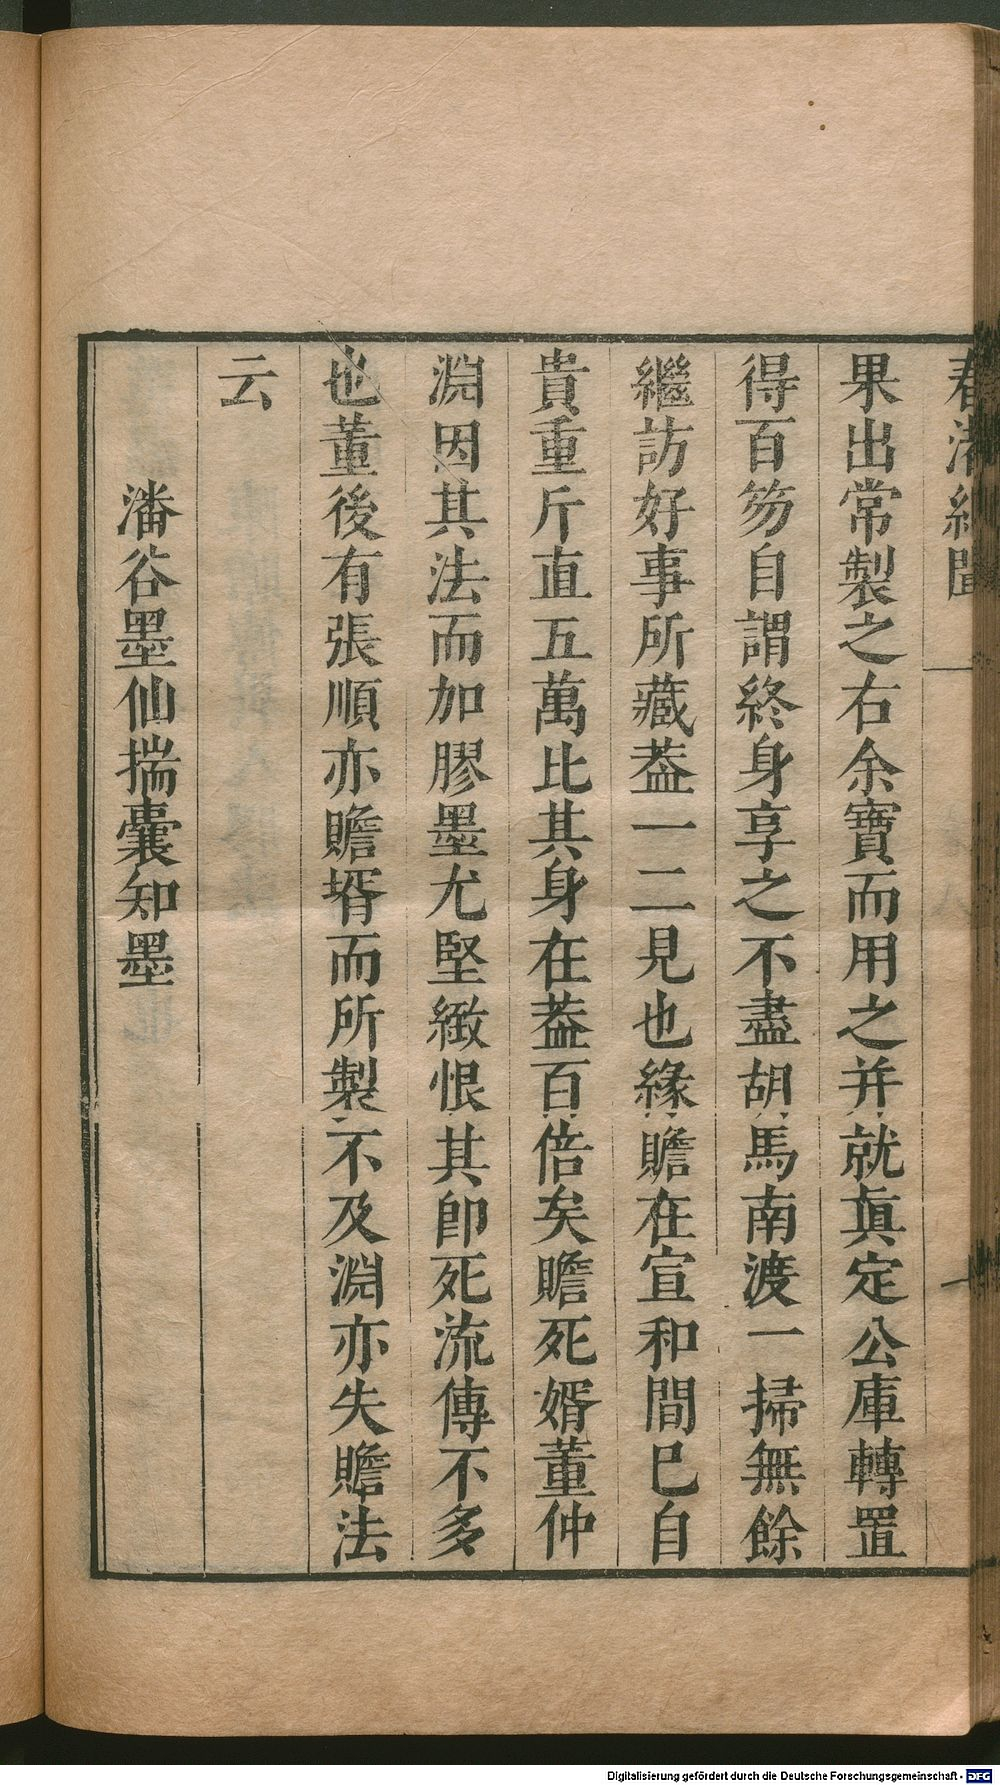 春渚紀聞
果出常製之右余寶而用之并就眞定公庫轉置
得百笏自謂終身享之不盡胡馬南渡一掃無餘
繼訪好事所藏葢一二見也緣贍在宣和間已自
貴重斤直五萬比其身在葢百倍矣贍死婿董仲
淵因其法而加膠墨尤堅緻恨其卽死流傳不多
也董後有張順亦贍壻而所製不及淵亦失贍法
云
潘谷墨仙揣囊知墨
Digitalisierung gefördert durch die Deutsche Forschungsgemeinschaft - DFG